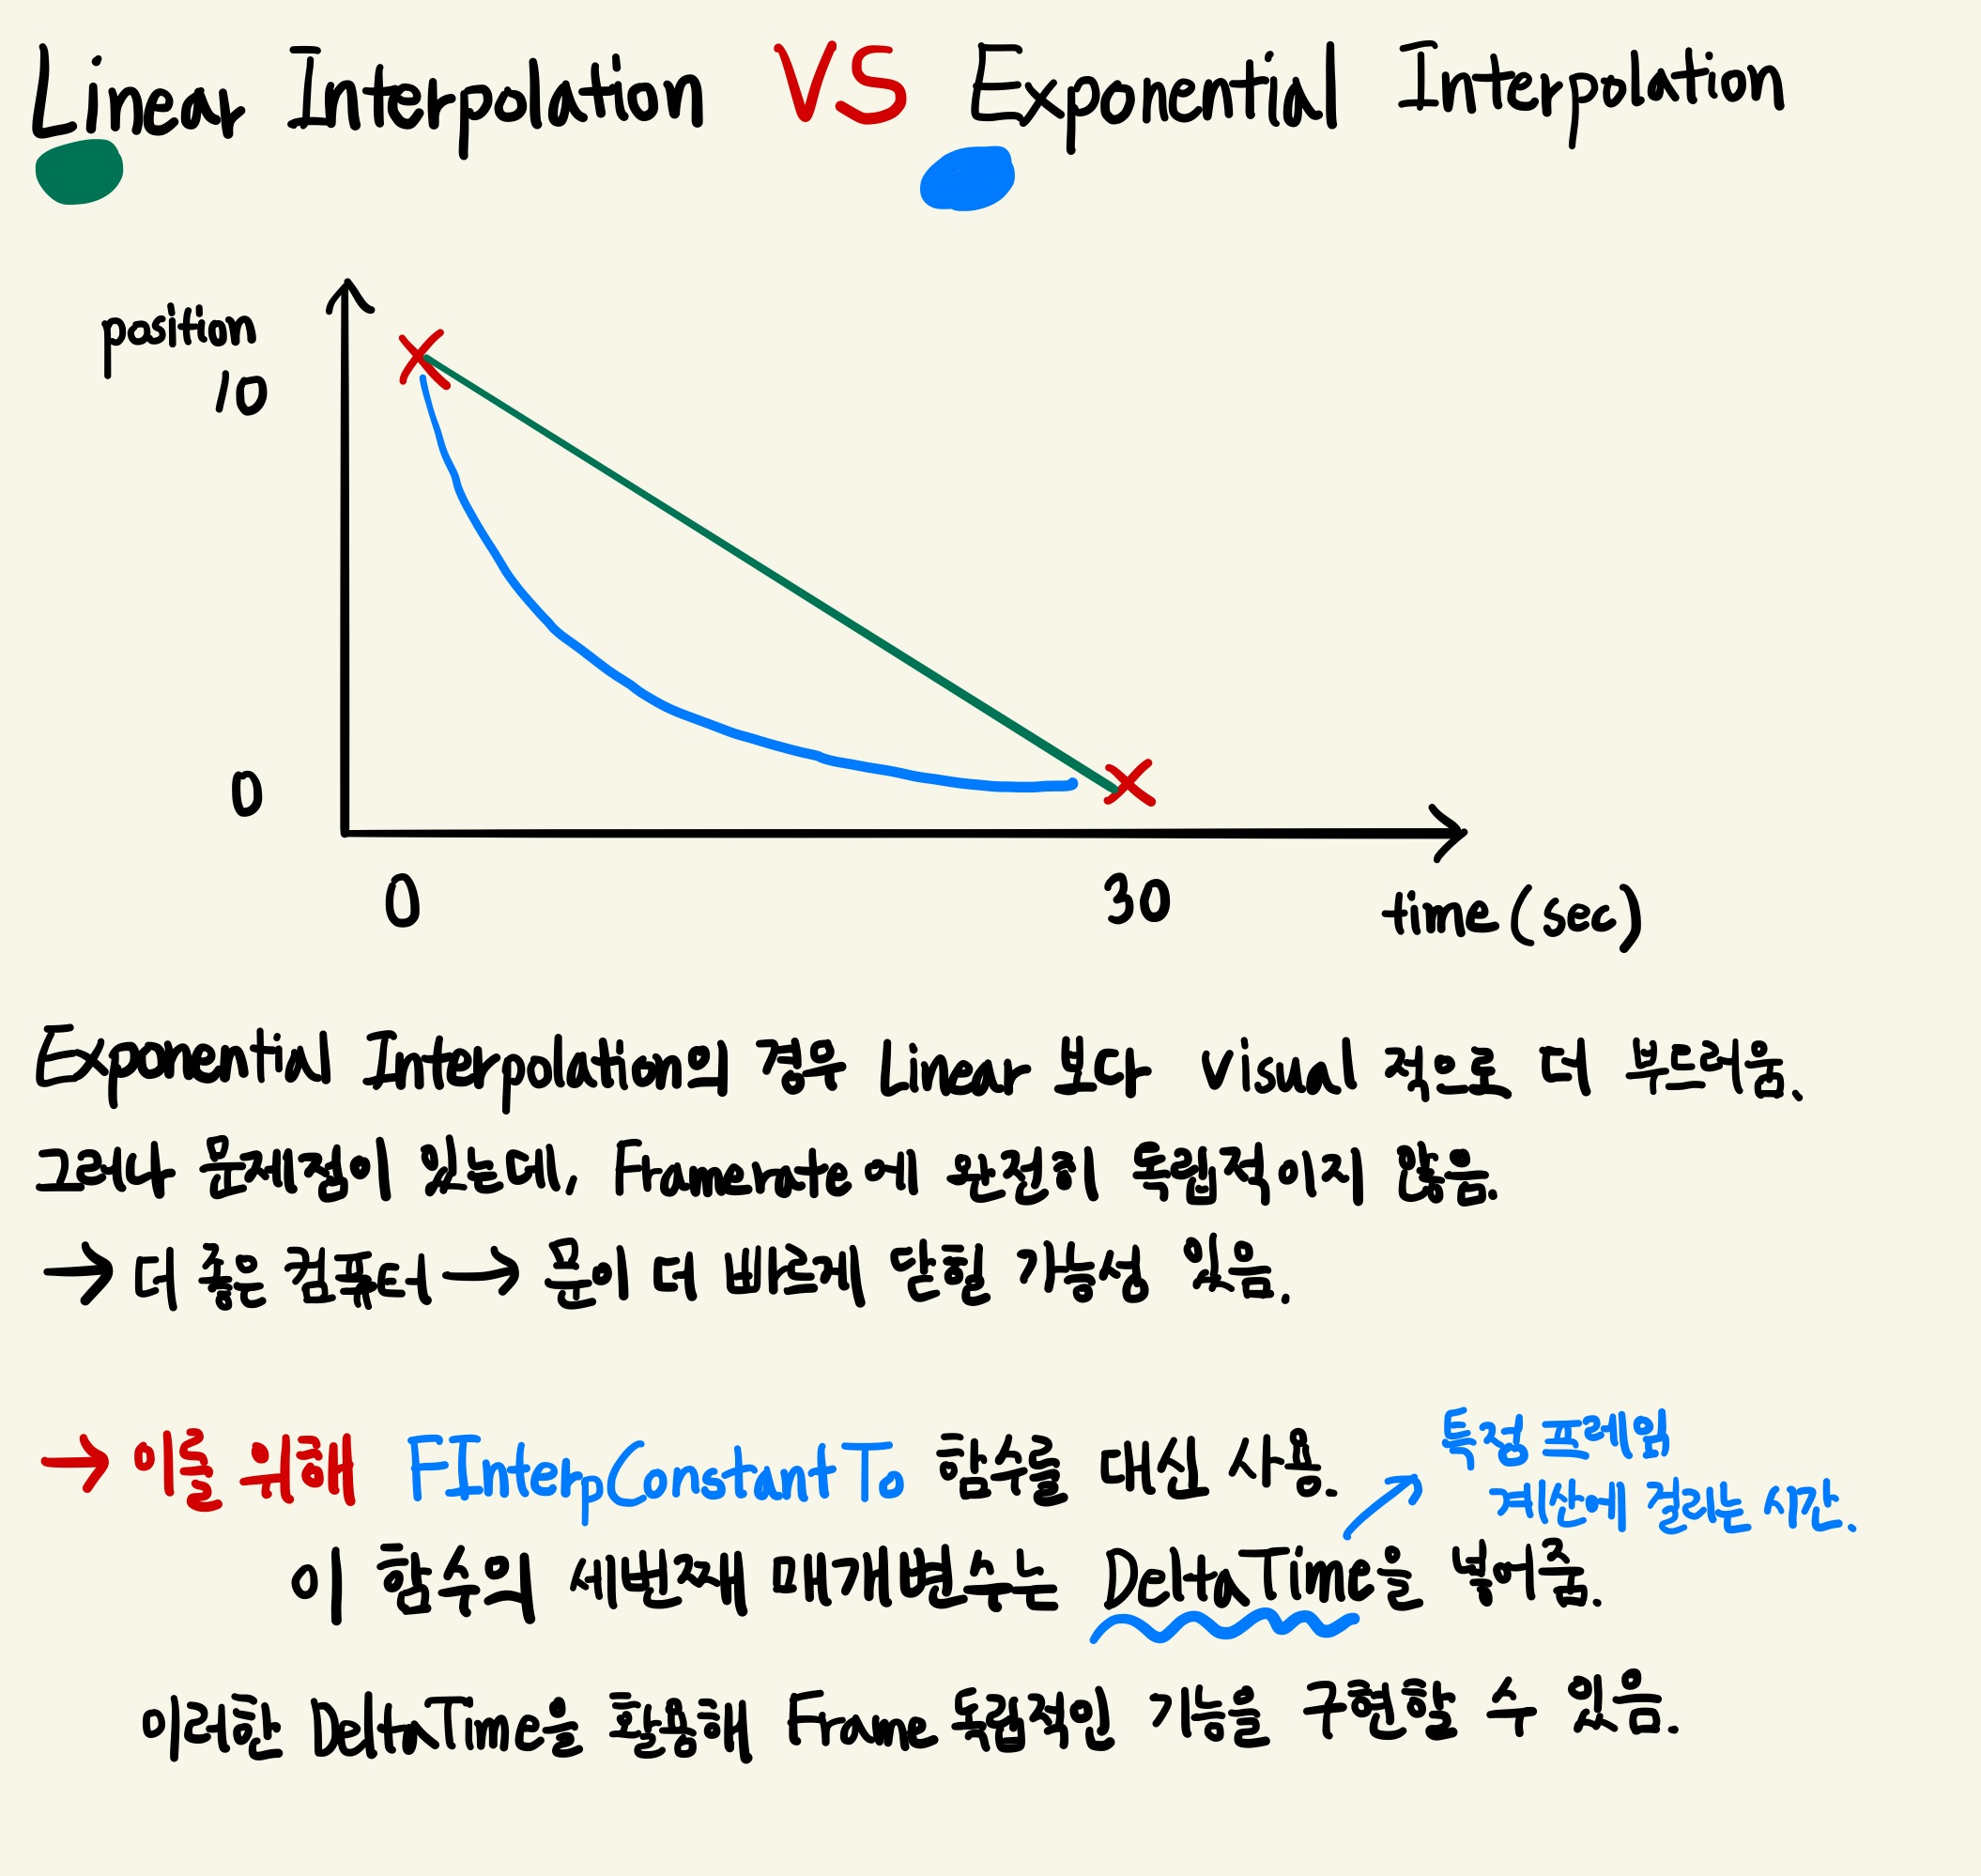 Linear Interpolation VS Exponential Interpolation
position
10
0
0 30 time (sec)
Exponential Interpolation의 경우 Linear 보다 Visual 적으로 더 부드러움.
그러나 문제점이 있는데, Framerate에 완전히 독립적이지 않음.
→ 더 좋은 컴퓨터 → 문이 더 빠르게 닫힐 가능성 있음.
→ 이를 위해 FInterpConstantTo 함수를 대신 사용.
특정 프레임
계산에 걸리는 시간.
이 함수의 세번째 매개변수는 DeltaTime을 넣어줌.
이러한 DeltaTime을 활용해 Frame 독립적인 기능을 구현할 수 있음.